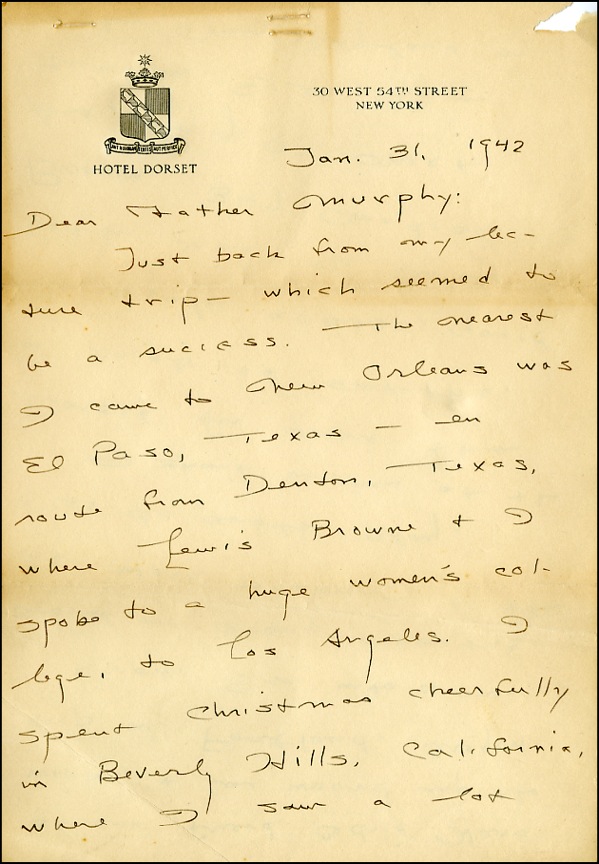 30 WEST 54TH STREET
NEW YORK
HOTEL DORSET
Jan. 31, 1942
Dear Father Murphy:
Just back from my lec-
ture trip — which seemed to
be a success. The nearest
I came to New Orleans was
El Paso, Texas — en
route from Denton, Texas,
where Lewis Browne & I
spoke to a huge women's col-
lege, to Los Angeles. I
spent Christmas cheerfully
in Beverly Hills, California,
where I saw a lot